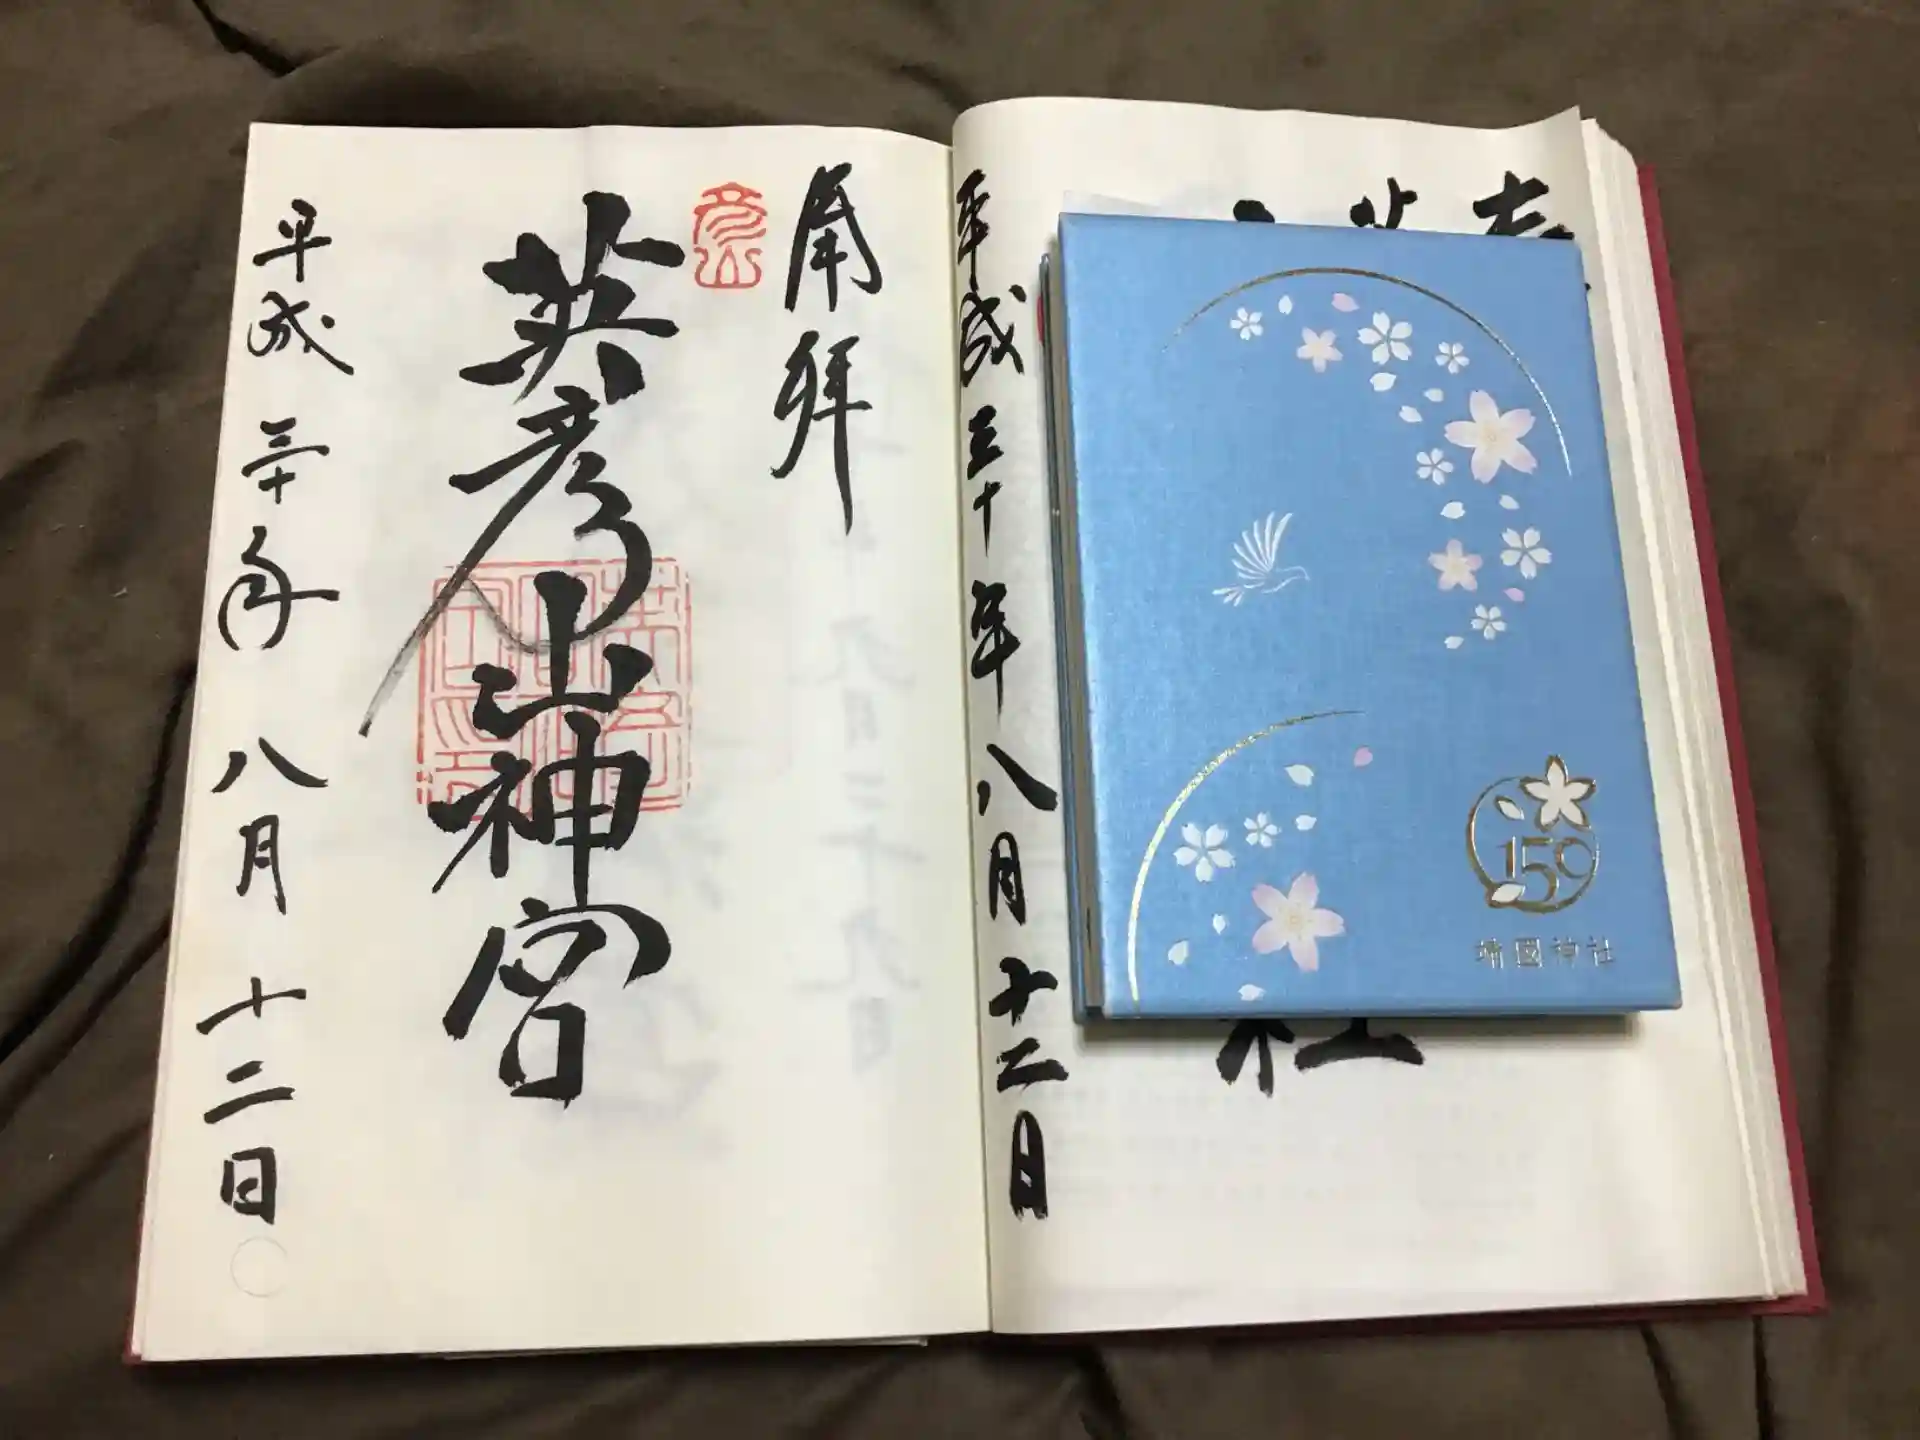 150
靖國神社
平成三十年八月十二日
奉拝
英彦山神宮
平成三十年八月十二日